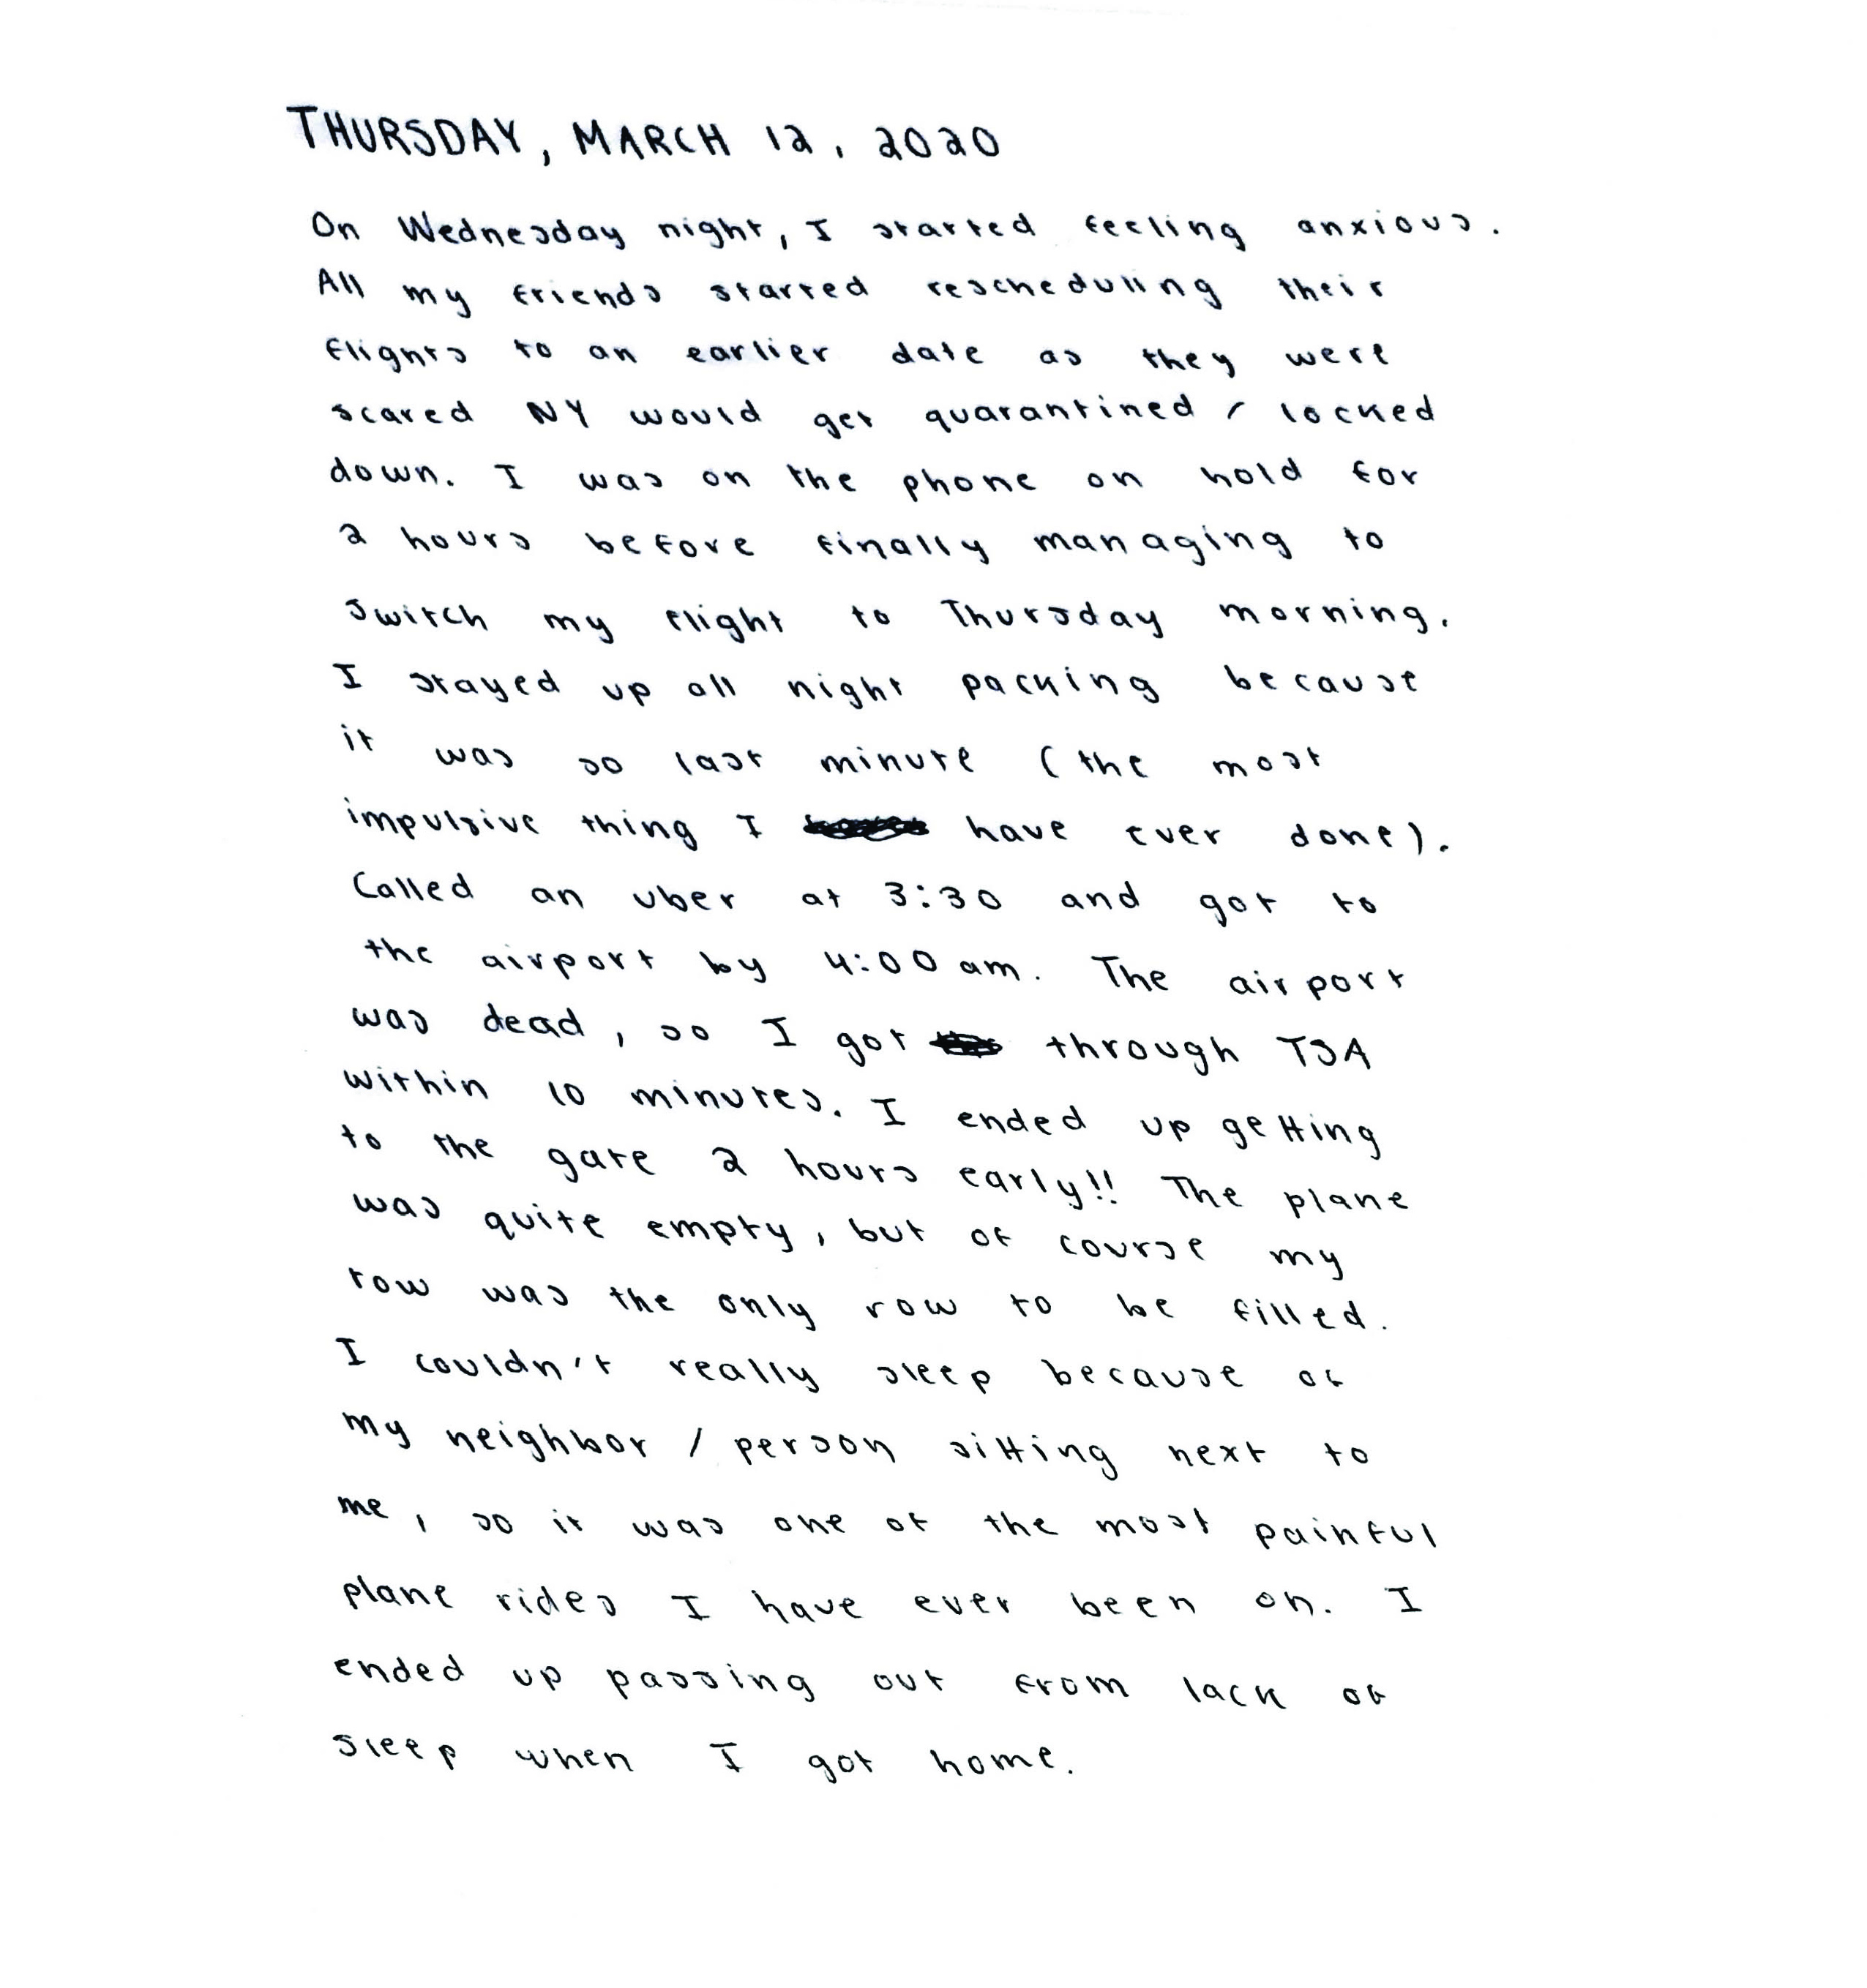 THURSDAY, MARCH 12, 2020
On Wednesday night, I started feeling anxious.
All my friends started rescheduling their
flights to an earlier date as they were
scared NY would get quarantined / locked
down. I was on the phone on hold for
2 hours before finally managing to
switch my flight to Thursday morning.
I stayed up all night packing because
it was so last minute (the most
impulsive thing I have ever done).
Called an uber at 3:30 and got to
the airport by 4:00 am. The airport
was dead, so I got through TSA
within 10 minutes. I ended up getting
to the gate 2 hours early!! The plane
was quite empty, but of course my
row was the only row to be filled.
I couldn't really sleep because of
my neighbor / person sitting next to
me, so it was one of the most painful
plane rides I have ever been on. I
ended up passing out from lack of
sleep when I got home.